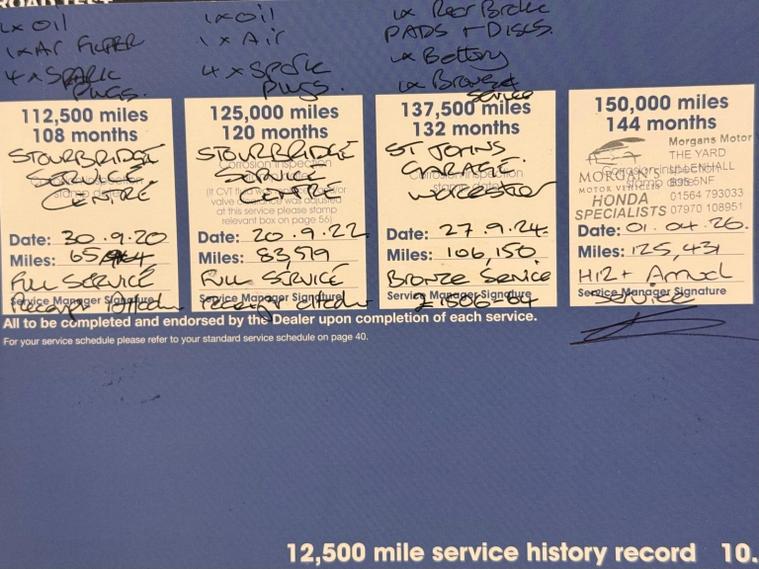 ROAD TEST
1x OIL
1x Air FILTER
4 x SPARK
PLUGS.
1x OIL
1 x Air
4 x Spark
PLUGS.
1x Rear Brake
PADS + DISCS.
1x Battery
1x Bronze
Service
112,500 miles
108 months
STOURBRIDGE
SERVICE
CENTRE
Date: 30.9.20
Miles:
FULL SERVICE
Service Manager Signature
125,000 miles
120 months
STOURBRIDGE
SERVICE
CENTRE
Corrosion inspection
at this service please stamp
relevant box on page 56)
Date: 20.9.22
Miles: 83,519
FULL SERVICE
Service Manager Signature
137,500 miles
132 months
ST JOHNS
GARAGE.
Worcester
Corrosion inspection
Date: 27.9.24
Miles: 106,150
BRONZE Service
Service Manager Signature
150,000 miles
144 months
Morgans Motor
THE YARD
ULLENHALL
B95 5NF
01564 793033
07970 108951
MORGAN'S
MOTOR VEHICLES
HONDA
SPECIALISTS
Corrosion inspection
Date: 01.04.26.
Miles: 125,431
Service Manager Signature
Service
All to be completed and endorsed by the Dealer upon completion of each service.
For your service schedule please refer to your standard service schedule on page 40.
12,500 mile service history record 10.